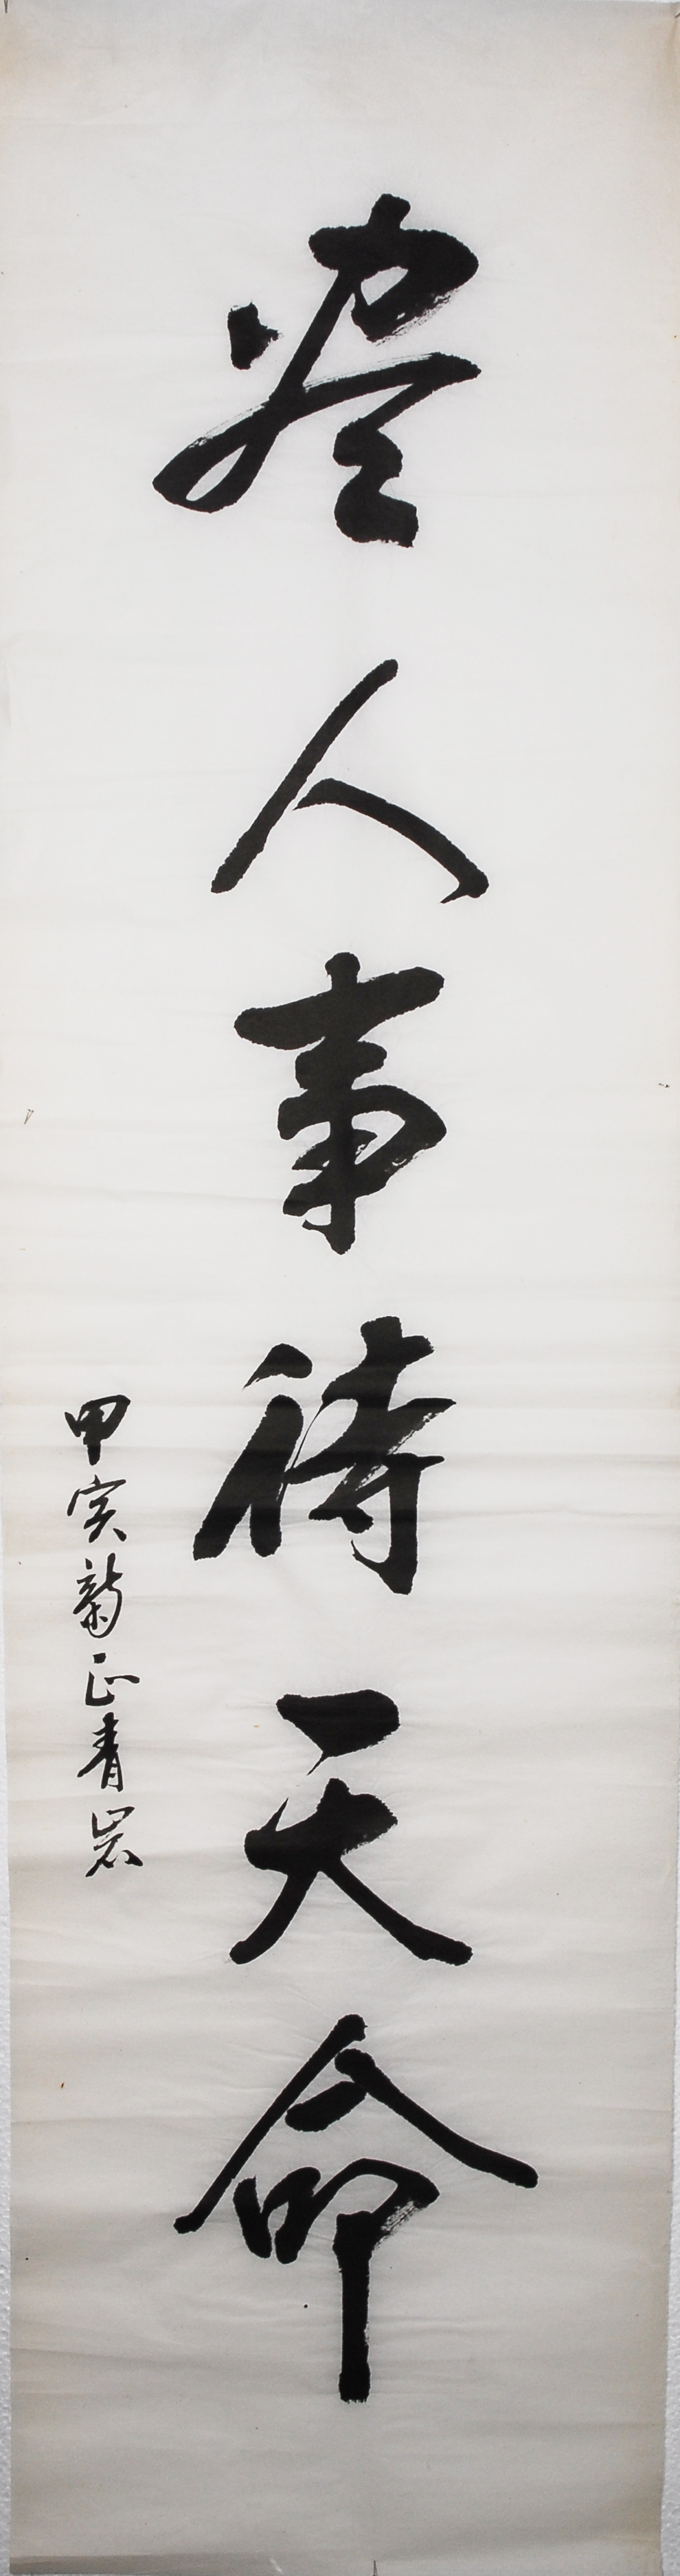 盡人事待天命
甲寅新正青岩